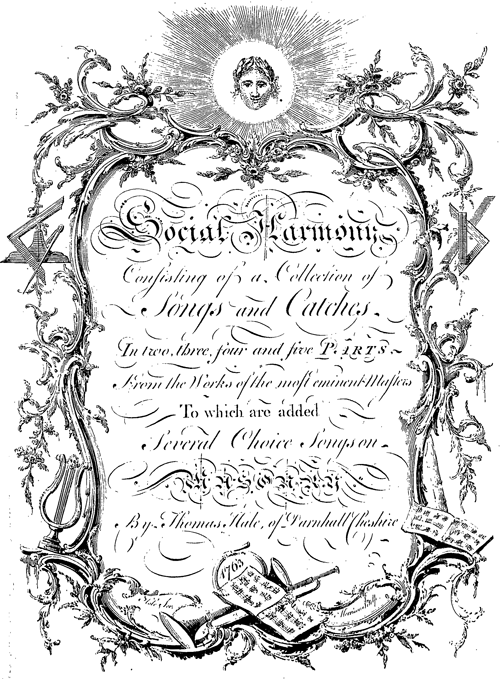 Social Harmony
Consisting of a Collection of
Songs and Catches
In two, three, four and five PARTS
From the Works of the most eminent Masters
To which are added
Several Choice Songs on
MASONRY
By Thomas Hale, of Darnhall Cheshire
1763